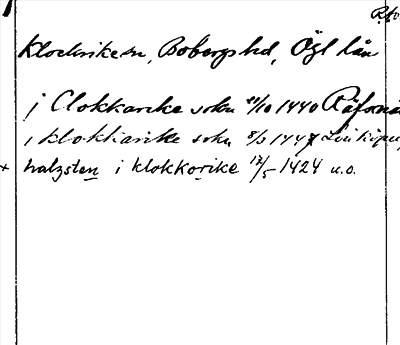 Klockrike sn, Bobergs hd, Ögl län
j Clokkarike sokn 29/10 1440
i klokkarike sokn 8/3 1447 Linköping
x halzsten i klokkorike 12/5 1424 u.o.